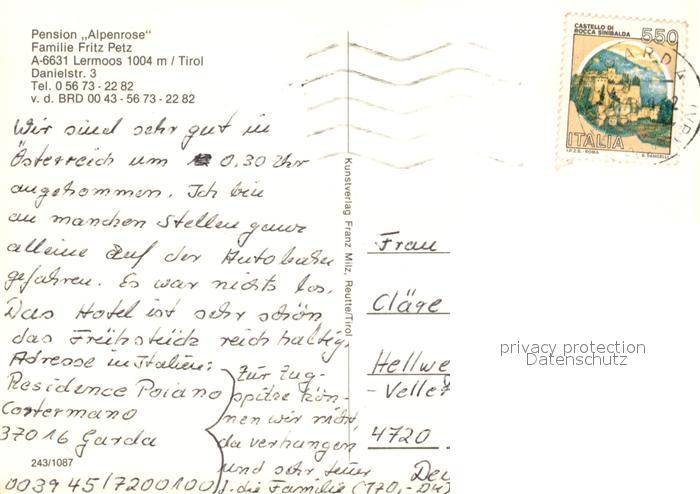 Pension „Alpenrose"
Familie Fritz Petz
A-6631 Lermoos 1004 m / Tirol
Danielstr. 3
Tel. 0 56 73 - 22 82
v. d. BRD 00 43 - 56 73 - 22 82
Wir sind sehr gut in
Österreich um 0.30 Uhr
angekommen. Ich bin
an manchen Stellen ganz
alleine auf der Autobahn
gefahren. Es war nichts los.
Das Hotel ist sehr schön
das Frühstück reichhaltig.
Adresse in Italien:
Residence Poiano
Costermano
37016 Garda
243/1087
003945/7200100
Zur Zug-
spitze kön-
nen wir nicht,
da verhangen
und sehr teuer
f. die Familie (170,- DM)
Kunstverlag Franz Milz, Reutte/Tirol
CASTELLO DI
ROCCA SINIBALDA
550
ITALIA
I.P.Z.S. - ROMA
GARDA
Frau
Cläre
Hellwe
- Velle
4720
Deu
privacy protection
Datenschutz